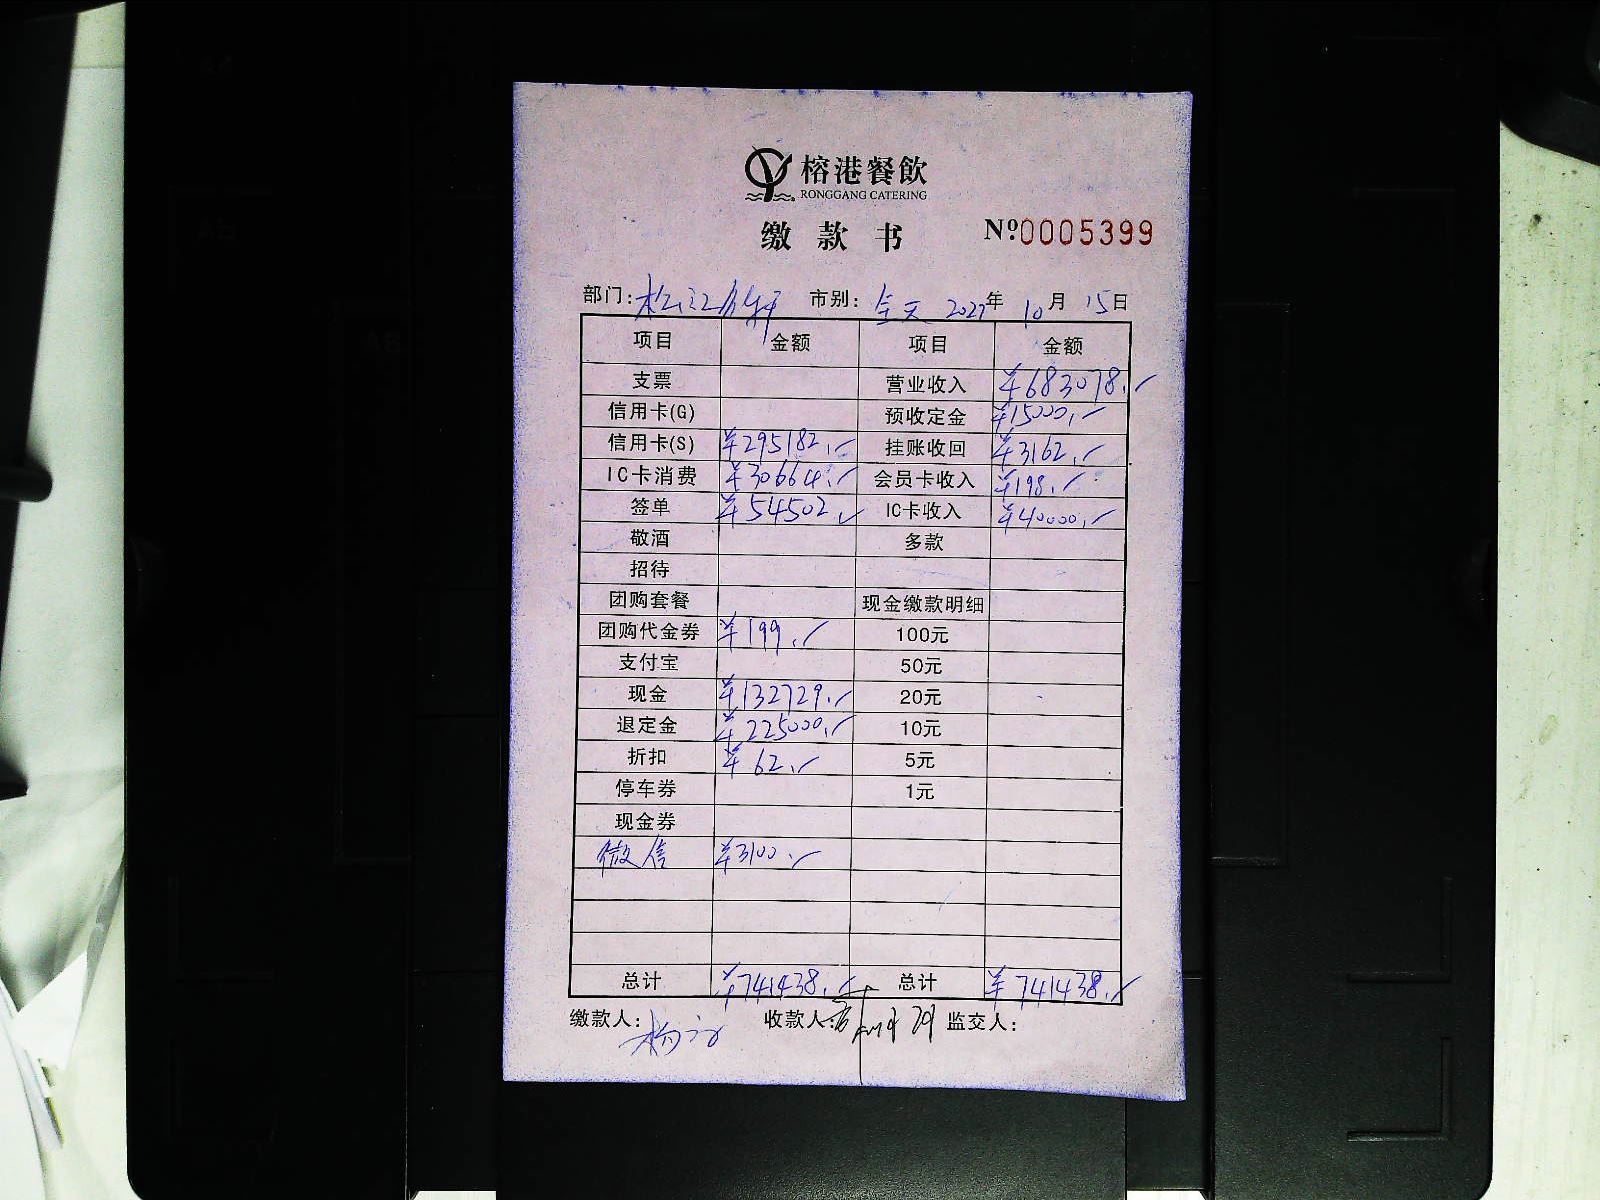 榕港餐飲
RONGGANG CATERING
缴款书 Nº0005399
部门: 松江 市别: 全天 202 年 10 月 15 日
项目 金额 项目 金额
支票 营业收入 ¥683078.
信用卡(G) 预收定金 ¥15000.
信用卡(S) ¥295182. 挂账收回 ¥3162.
IC卡消费 ¥30664. 会员卡收入 ¥198.
签单 ¥54502. IC卡收入 ¥40000.
敬酒 多款
招待
团购套餐 现金缴款明细
团购代金券 ¥199. 100元
支付宝 50元
现金 ¥132729. 20元
退定金 ¥225000. 10元
折扣 ¥62. 5元
停车券 1元
现金券
微信 ¥3100.
总计 ¥741438. 总计 ¥741438.
缴款人: 杨 收款人: 监交人: